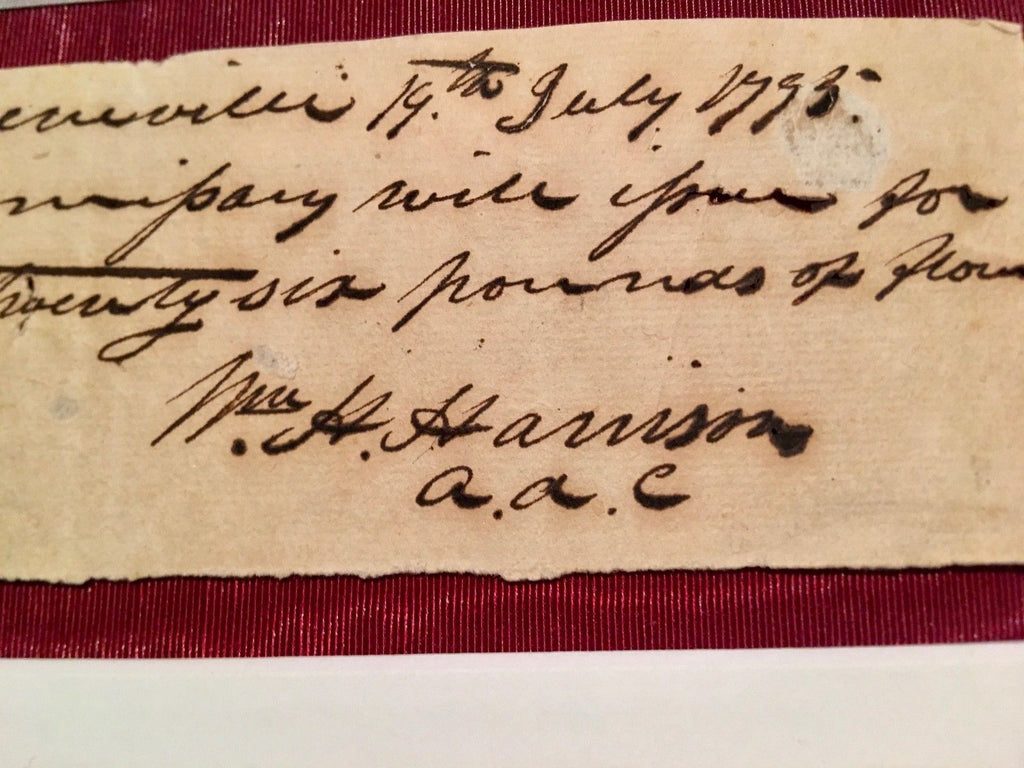 eneville 19.th July 1795.
mmissary will issue for
twenty six pounds of flour
Wm. H. Harrison
a. d. C